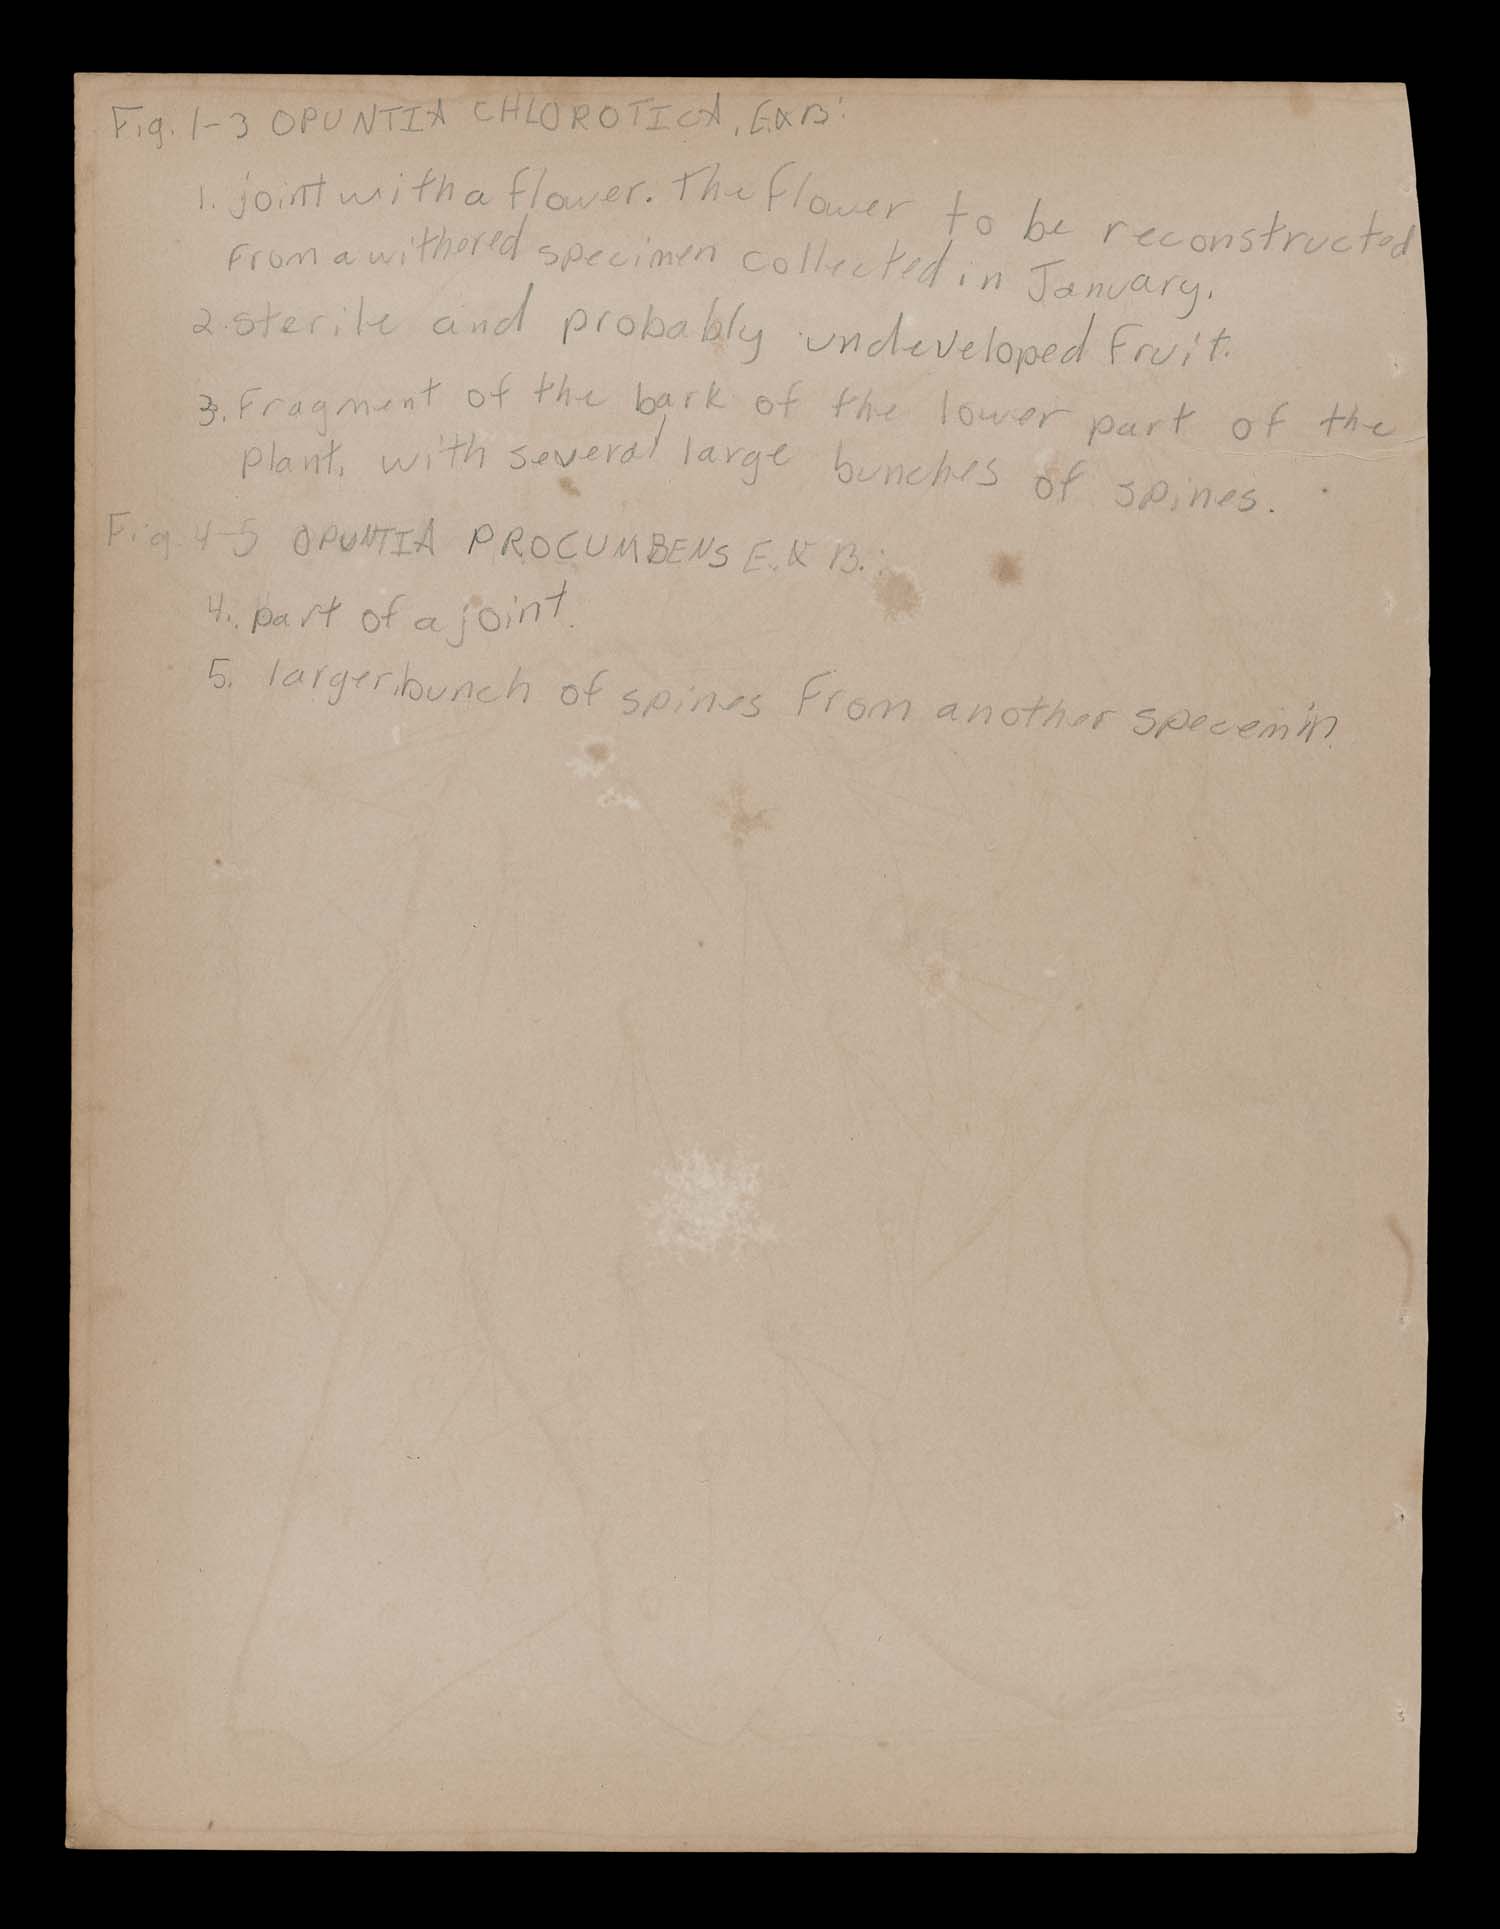 Fig. 1-3 OPUNTIA CHLOROTICA, E&B:
1. joint with a flower. The flower to be reconstructed
from a withered specimen collected in January.
2. sterile and probably undeveloped fruit.
3. Fragment of the bark of the lower part of the
plant, with several large bunches of spines.
Fig. 4-5 OPUNTIA PROCUMBENS E. & B.:
4. part of a joint.
5. larger bunch of spines from another specemin.